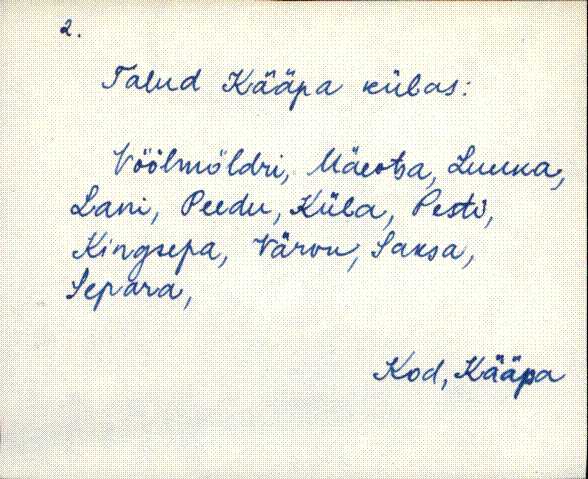 2.
Talud Kääpa külas:
Vöölmöldri, Mäeotsa, Luuka,
Lani, Peedu, Küla, Pesti,
Kingsepa, Värvu, Saksa,
Separa,
Kod, Kääpa